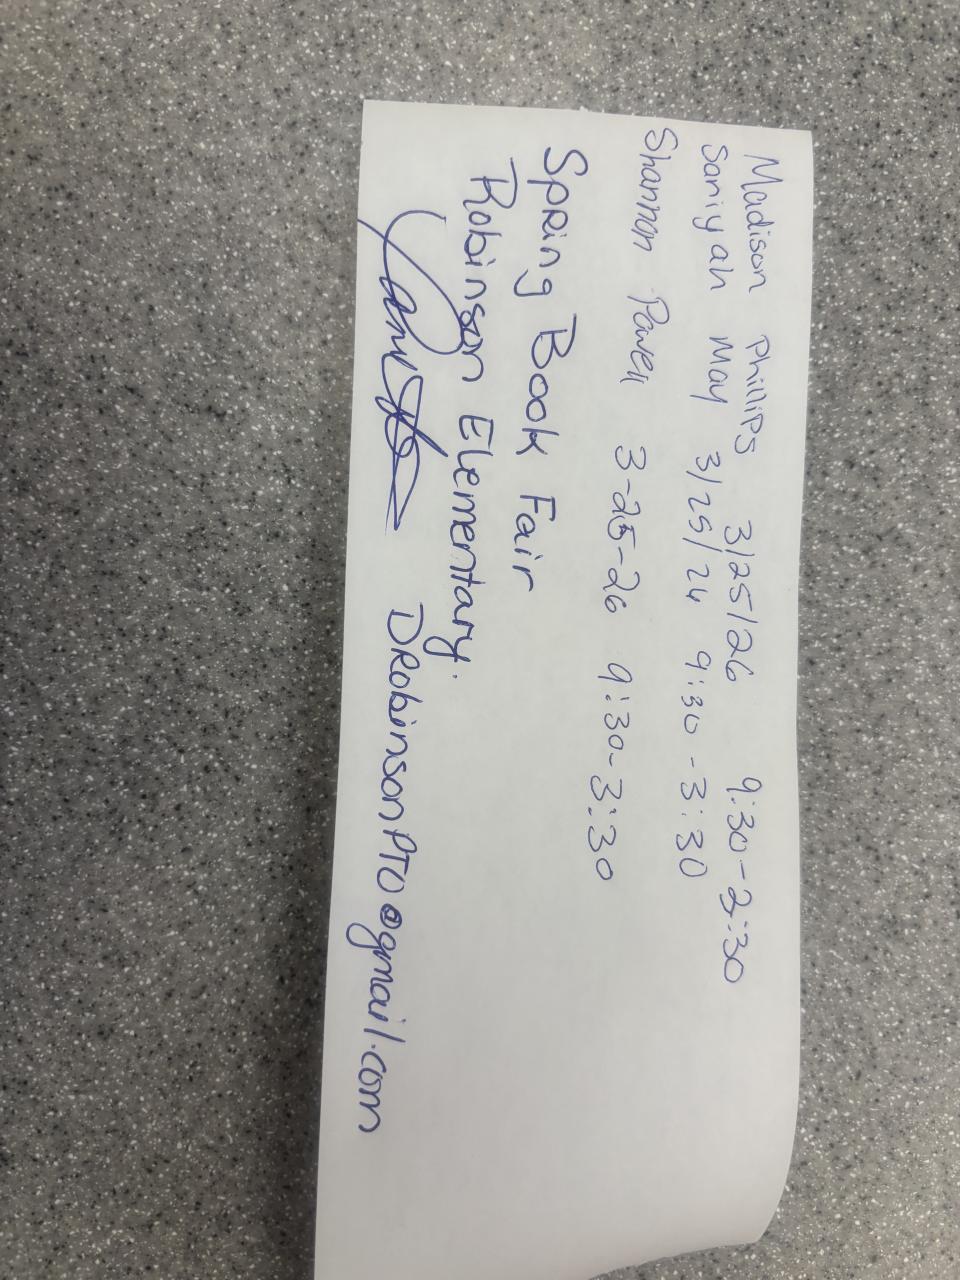 Madison Phillips 3/25/26 9:30-2:30
Saniyah May 3/25/24 9:30-3:30
Shannon Powell 3-25-26 9:30-3:30
Spring Book Fair
Robinson Elementary.
DRobinsonPTO@gmail.com